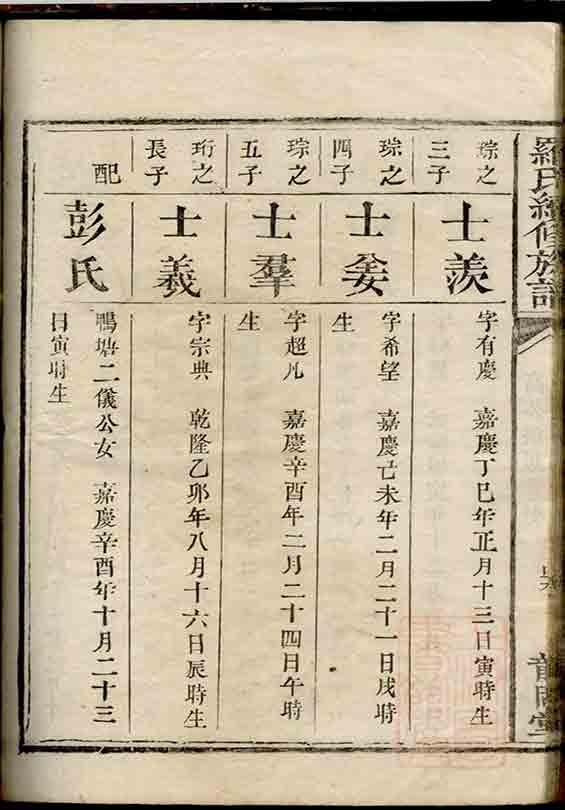 羅氏續修族譜
琮之
三子
士羨
字有慶 嘉慶丁巳年正月十三日寅時生
琮之
四子
士姜
字希望 嘉慶己未年二月二十一日戌時
生
琮之
五子
士羣
字超凡 嘉慶辛酉年二月二十四日午時
生
珩之
長子
士義
字宗典 乾隆乙卯年八月十六日辰時生
配
彭氏
鴨塘二儀公女 嘉慶辛酉年十月二十三
日寅時生